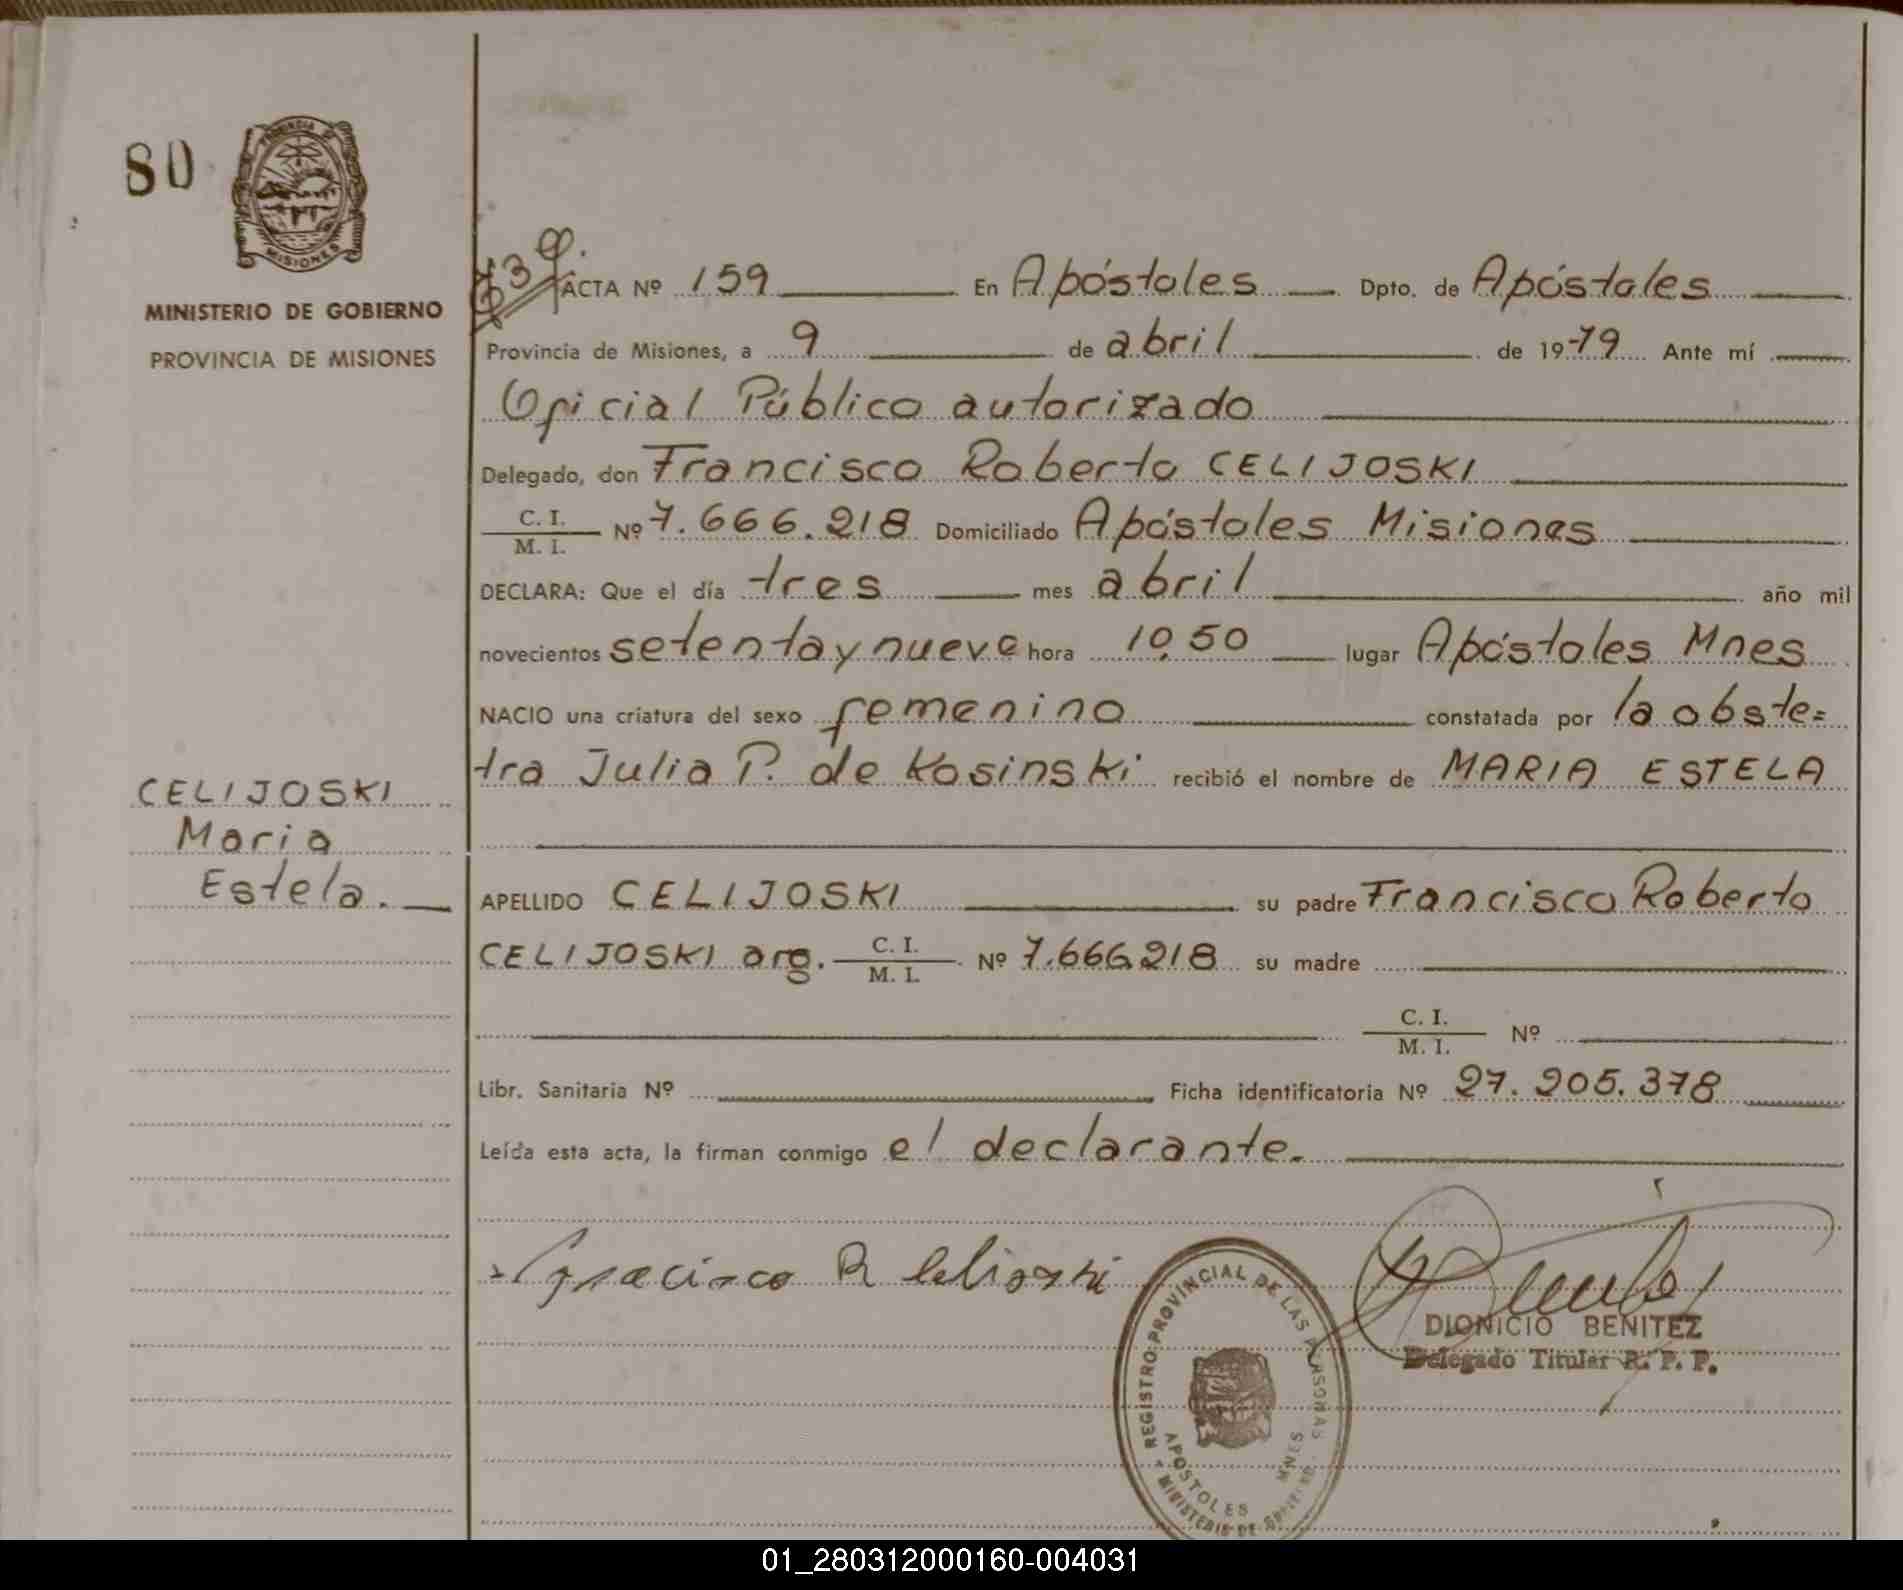 80
PROVINCIA DE
MISIONES
MINISTERIO DE GOBIERNO
PROVINCIA DE MISIONES
CELIJOSKI
Maria
Estela.
ACTA Nº 159 En Apóstoles Dpto. de Apóstoles
Provincia de Misiones, a 9 de abril de 1979 Ante mí
Oficial Público autorizado
Delegado, don Francisco Roberto CELIJOSKI
C. I.
M. I. Nº 7.666.218 Domiciliado Apóstoles Misiones
DECLARA: Que el día tres mes abril año mil
novecientos setenta y nueve hora 10,50 lugar Apóstoles Mnes
NACIO una criatura del sexo femenino constatada por la obste=
tra Julia P. de Kosinski recibió el nombre de MARIA ESTELA
APELLIDO CELIJOSKI su padre Francisco Roberto
CELIJOSKI arg. C. I.
M. I. Nº 7.666.218 su madre
C. I.
M. I. Nº
Libr. Sanitaria Nº Ficha identificatoria Nº 27.205.378
Leída esta acta, la firman conmigo el declarante.
Francisco R Celijoski
REGISTRO PROVINCIAL DE LAS PERSONAS
APOSTOLES MNES
MINISTERIO DE GOBIERNO
DIONICIO BENITEZ
Delegado Titular R. P. P.
01_280312000160-004031